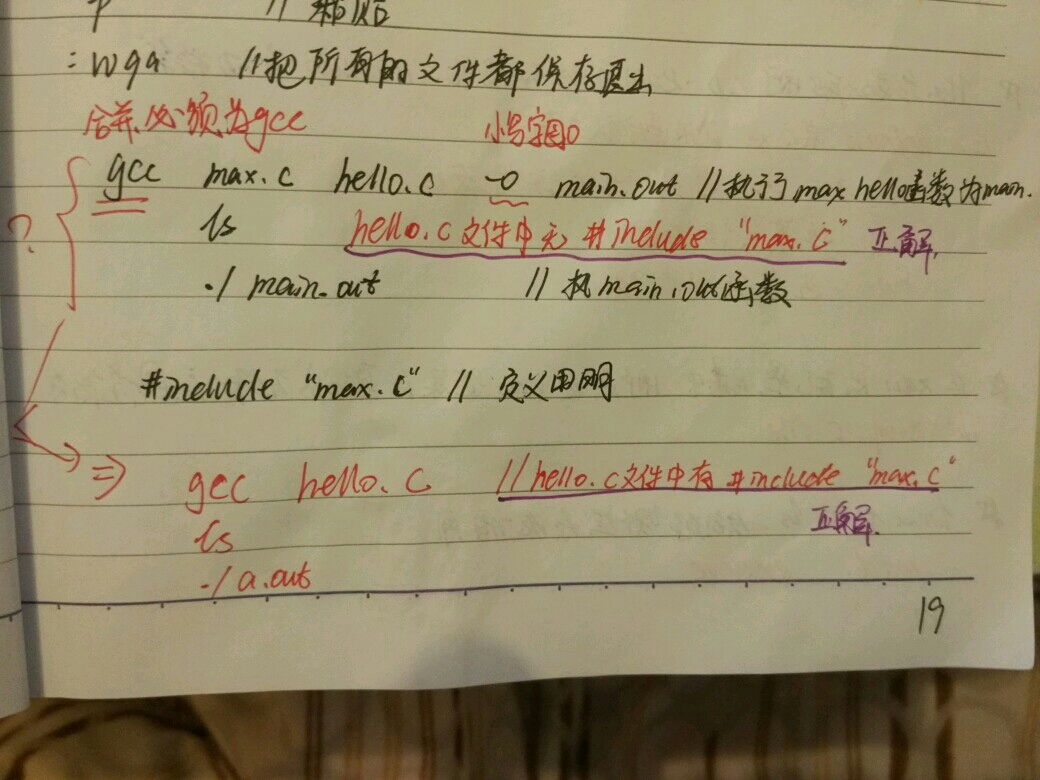 p // 粘贴
:wqa //把所有的文件都保存退出
合并必须为gcc 小写字母o
gcc max.c hello.c -o main.out //执行max hello函数为main.
ls hello.c文件中无 #include "max.c" 正解.
./main.out // 执main.out函数
#include "max.c" // 定义申明
? => gcc hello.c //hello.c文件中有 #include "max.c"
正解.
ls
./a.out
19